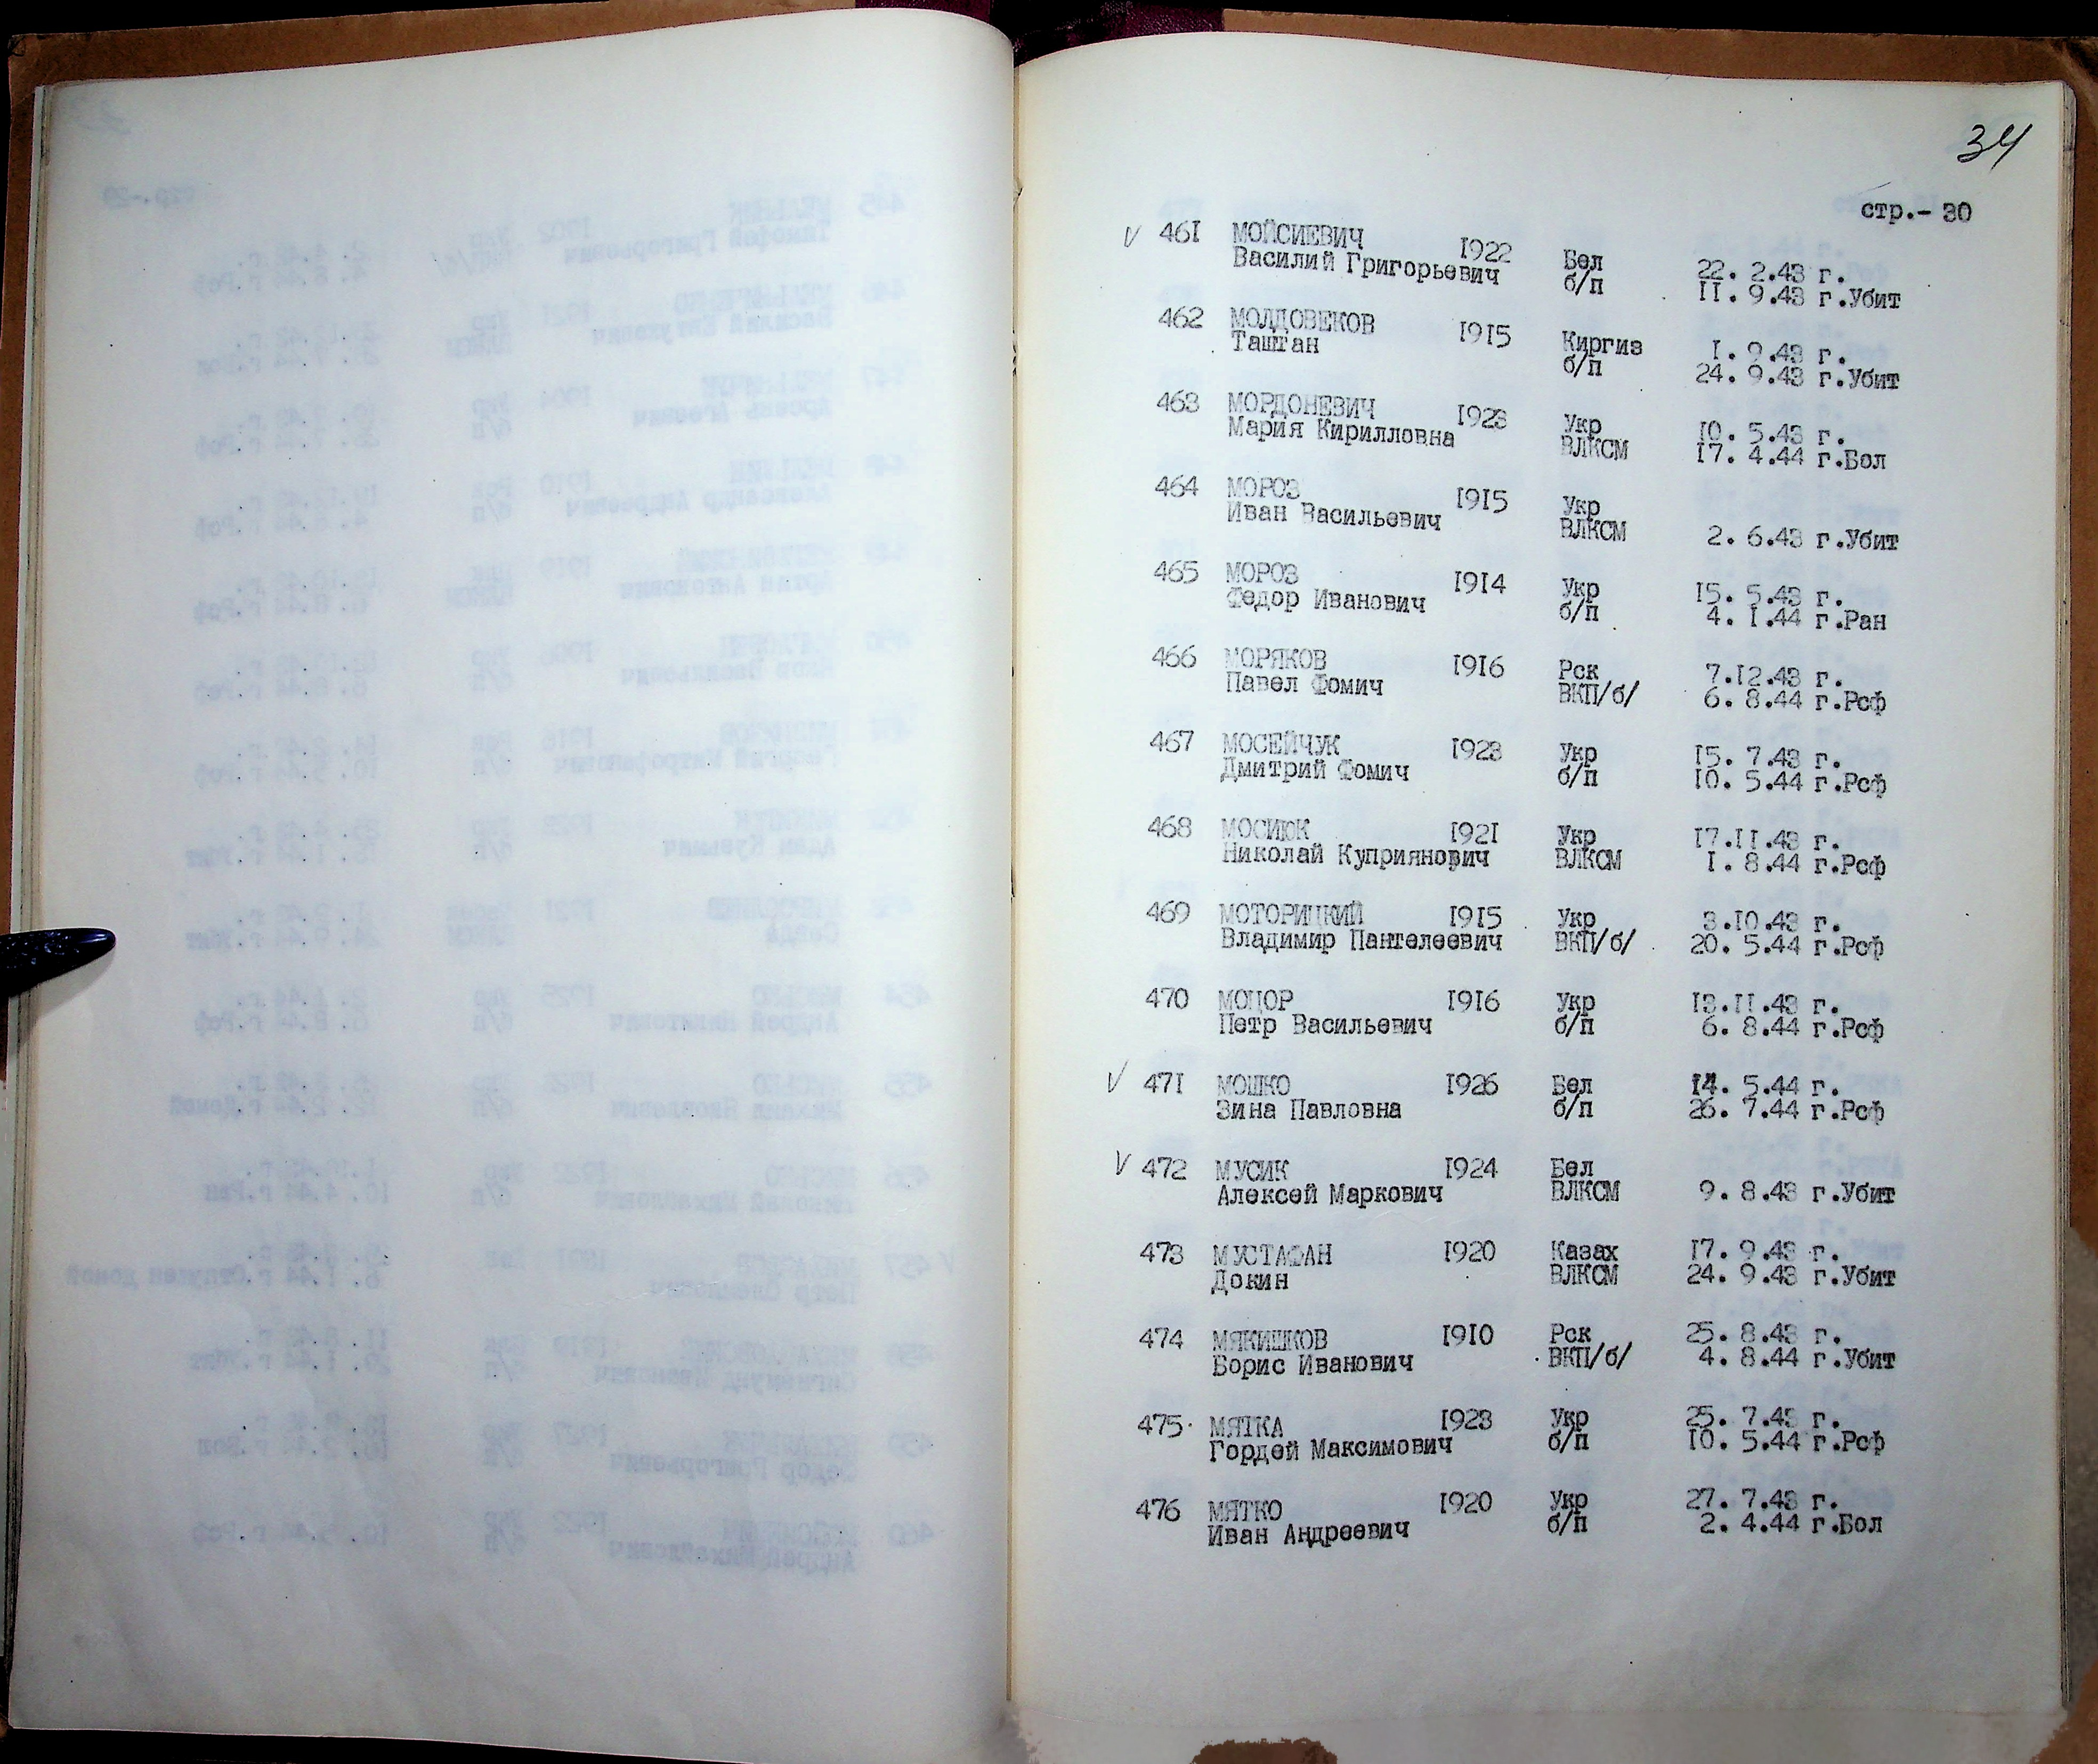 34
стр.- 30
V 461 МОЙСИЕВИЧ 1922 Бел 22. 2.43 г.
Василий Григорьевич б/п 11. 9.43 г.Убит
462 МОЛДОВЕКОВ 1915 Киргиз 1. 9.43 г.
Таштан б/п 24. 9.43 г.Убит
463 МОРДОНЕВИЧ 1923 Укр 10. 5.43 г.
Мария Кирилловна ВЛКСМ 17. 4.44 г.Бол
464 МОРОЗ 1915 Укр
Иван Васильевич ВЛКСМ 2. 6.43 г.Убит
465 МОРОЗ 1914 Укр 15. 5.43 г.
Федор Иванович б/п 4. 1.44 г.Ран
466 МОРЯКОВ 1916 Рск 7.12.43 г.
Павел Фомич ВКП/б/ 6. 8.44 г.Рсф
467 МОСЕЙЧУК 1923 Укр 15. 7.43 г.
Дмитрий Фомич б/п 10. 5.44 г.Рсф
468 МОСИЮК 1921 Укр 17.11.43 г.
Николай Куприянович ВЛКСМ 1. 8.44 г.Рсф
469 МОТОРИЦКИЙ 1915 Укр 3.10.43 г.
Владимир Пантелеевич ВКП/б/ 20. 5.44 г.Рсф
470 МОЦОР 1916 Укр 13.11.43 г.
Петр Васильевич б/п 6. 8.44 г.Рсф
V 471 МОШКО 1926 Бел 14. 5.44 г.
Зина Павловна б/п 26. 7.44 г.Рсф
V 472 МУСИК 1924 Бел
Алексей Маркович ВЛКСМ 9. 8.43 г.Убит
473 МУСТАФАН 1920 Казах 17. 9.43 г.
Докин ВЛКСМ 24. 9.43 г.Убит
474 МЯКИШКОВ 1910 Рск 25. 8.43 г.
Борис Иванович ВКП/б/ 4. 8.44 г.Убит
475 МЯТКА 1923 Укр 25. 7.43 г.
Гордей Максимович б/п 10. 5.44 г.Рсф
476 МЯТКО 1920 Укр 27. 7.43 г.
Иван Андреевич б/п 2. 4.44 г.Бол